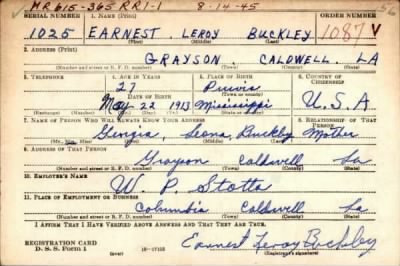 MR 615-365 RR1-1 8-14-45
SERIAL NUMBER 1. NAME (Print) ORDER NUMBER
1025 EARNEST LEROY BUCKLEY 1087 V
(First) (Middle) (Last)
2. ADDRESS (Print)
GRAYSON, CALDWELL LA
(Number and street or R. F. D. number) (Town) (County) (State)
3. TELEPHONE 4. AGE IN YEARS 5. PLACE OF BIRTH 6. COUNTRY OF CITIZENSHIP
27 Purvis
DATE OF BIRTH (Town or county)
May 22 1913 Mississippi U.S.A
(Exchange) (Number) (Mo.) (Day) (Yr.) (State or country)
7. NAME OF PERSON WHO WILL ALWAYS KNOW YOUR ADDRESS RELATIONSHIP OF THAT PERSON
Georgia, Leona, Buckley Mother
(Mr., Mrs., Miss) (First) (Middle) (Last)
8. ADDRESS OF THAT PERSON
Grayson Caldwell La
(Number and street or R. F. D. number) (Town) (County) (State)
10. EMPLOYER'S NAME
W. P. Stotts
11. PLACE OF EMPLOYMENT OR BUSINESS
Columbia Caldwell La
(Number and street or R. F. D. number) (Town) (County) (State)
I AFFIRM THAT I HAVE VERIFIED ABOVE ANSWERS AND THAT THEY ARE TRUE.
REGISTRATION CARD
D. S. S. Form 1 Earnest Leroy Buckley
(Registrant's signature)